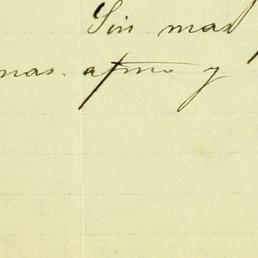 Sin mas
mas. atmo y